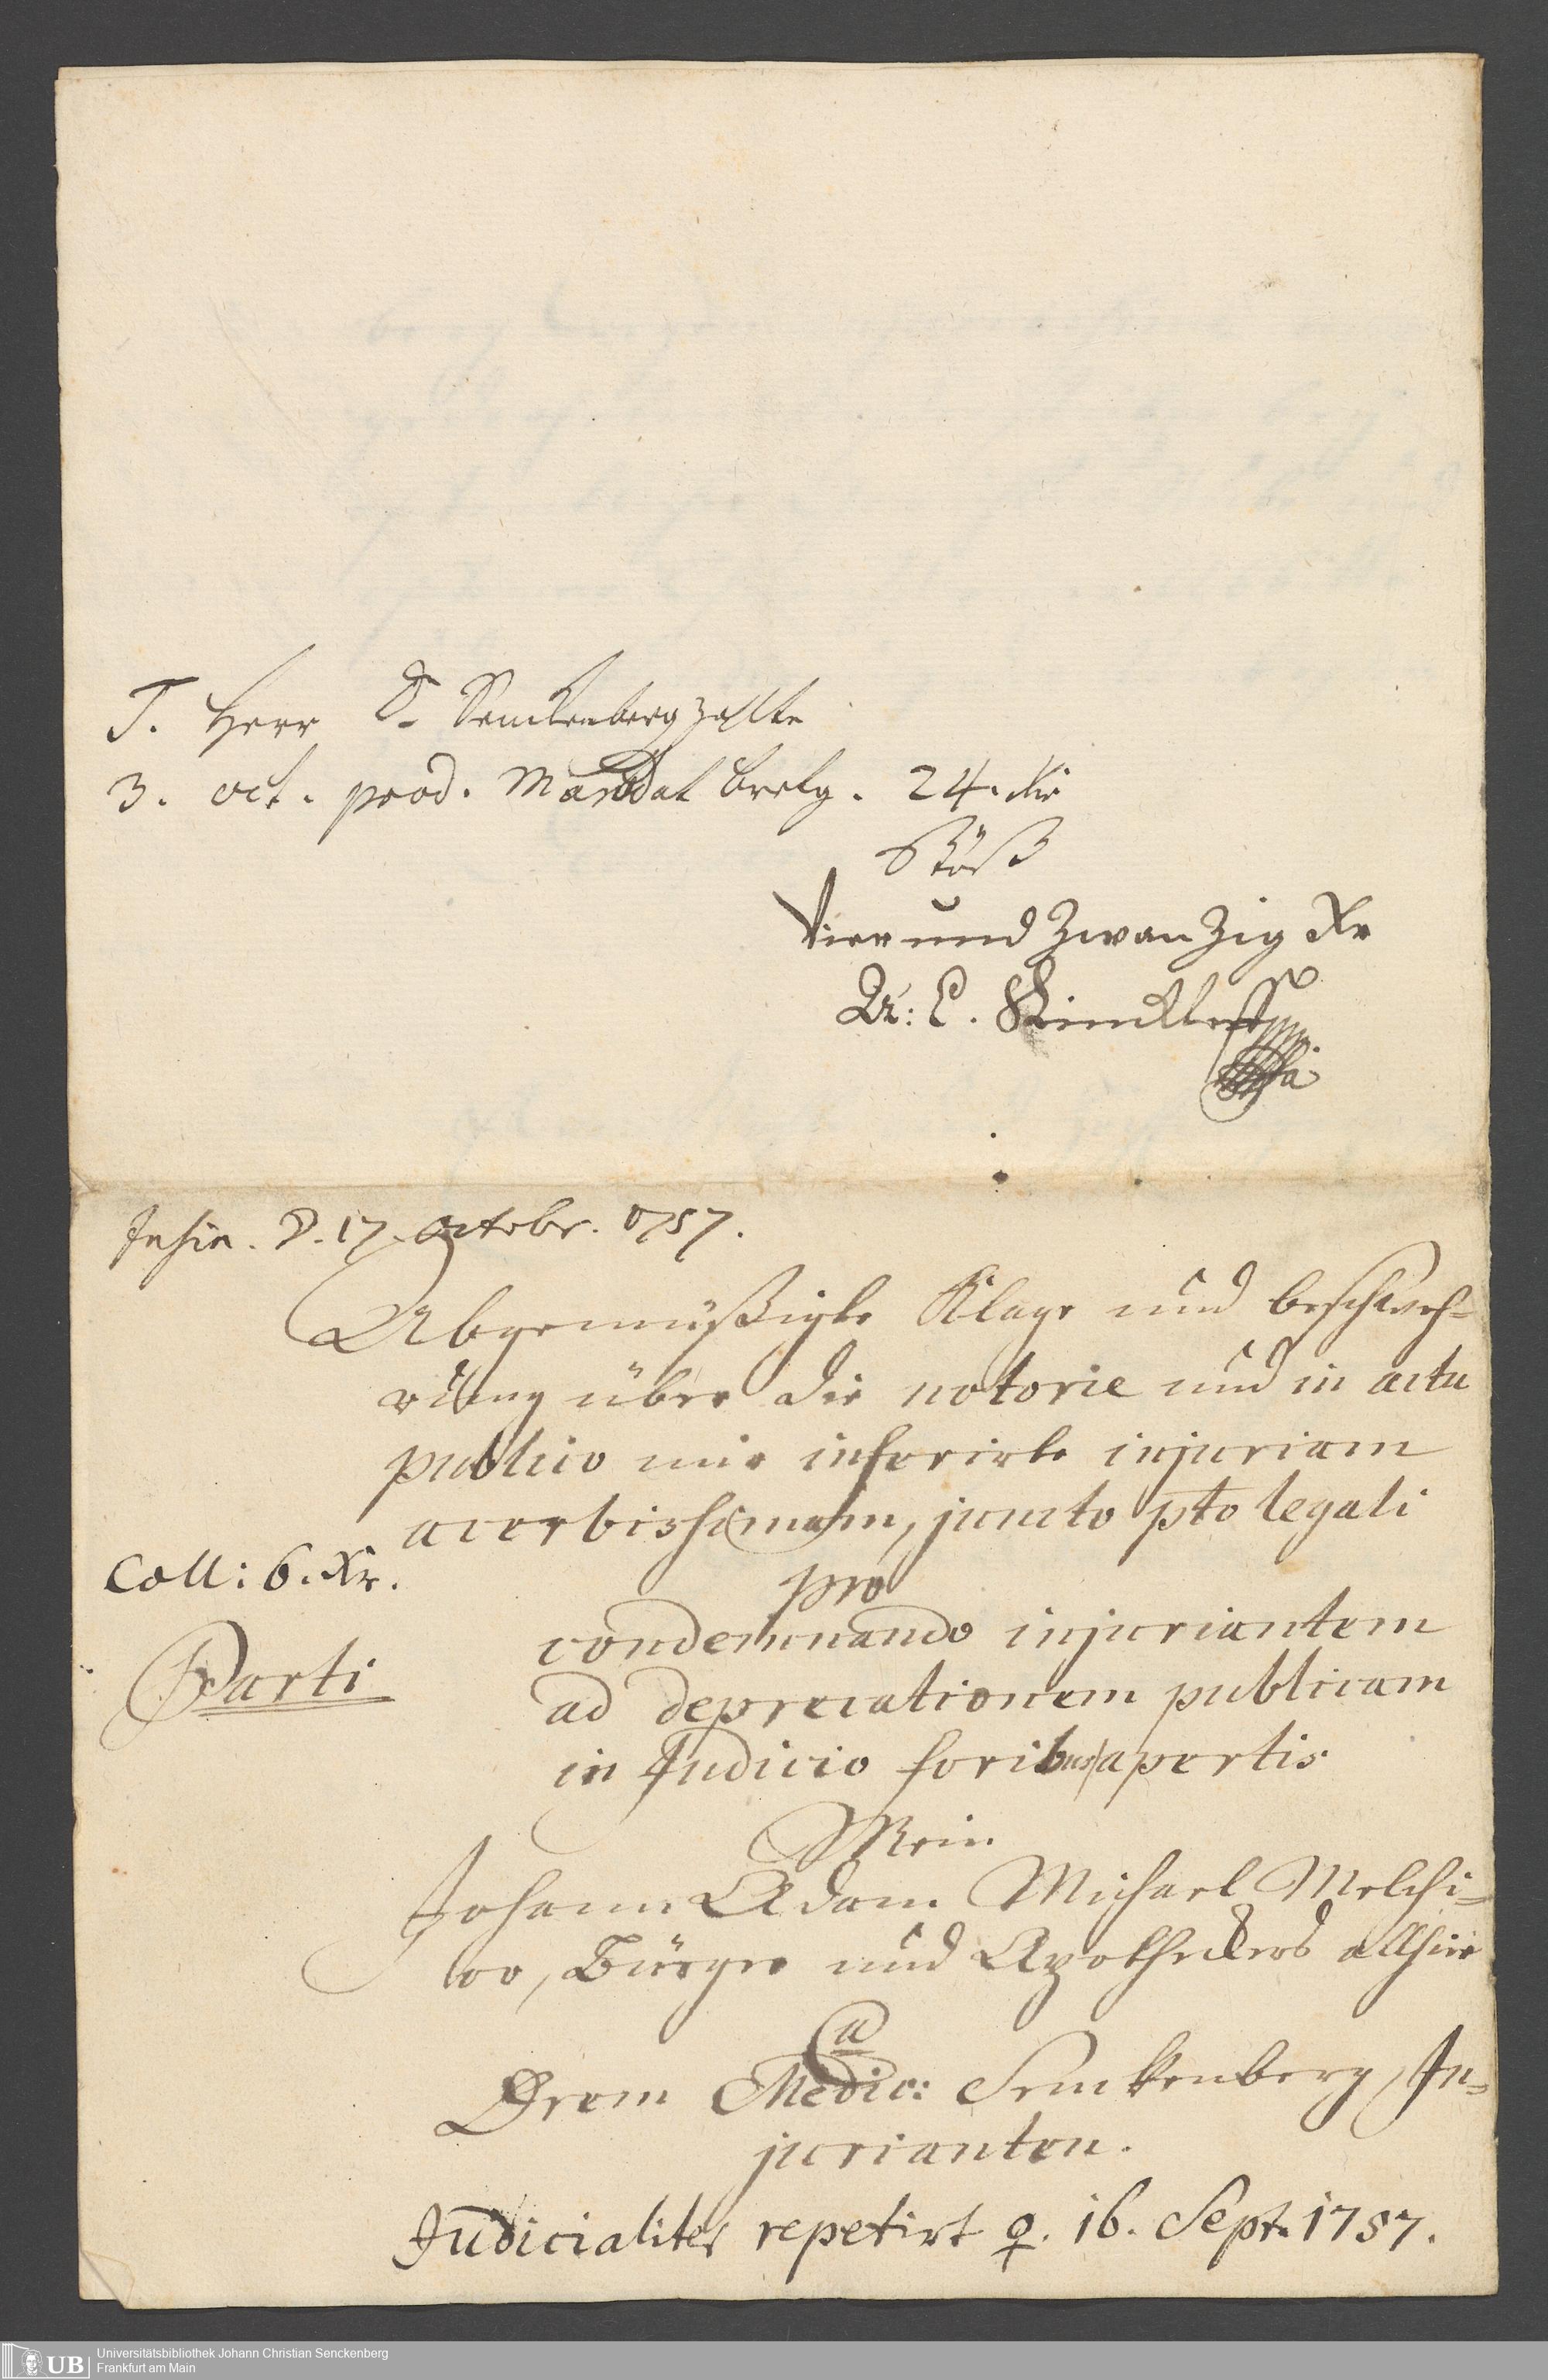 T. Herr D. Senckenberg zahlte
3. oct. prod. Mandat 24.
Vier und Zwanzig Xr
Insin. d. 17. Octobr. 1757.
Abgemüßigte Klage und beschweh-
rung über die notorie und in actu
publico mir inferirte injuriam
acerbissimam, juncto pto legali
Coll: 6. Xr.
pro
condemnando injuriantem
Parti
ad deprecationem publicam
in Judicio foribus apertis
Mein
Johann Adam Michael Melchi-
or, Bürger und Apotheckers allhier
Ca
Drem Medic: Senckenberg, In-
jurianten.
Judicialiter repetirt ♀. 16. Sept. 1757.
Universitätsbibliothek Johann Christian Senckenberg
UB Frankfurt am Main